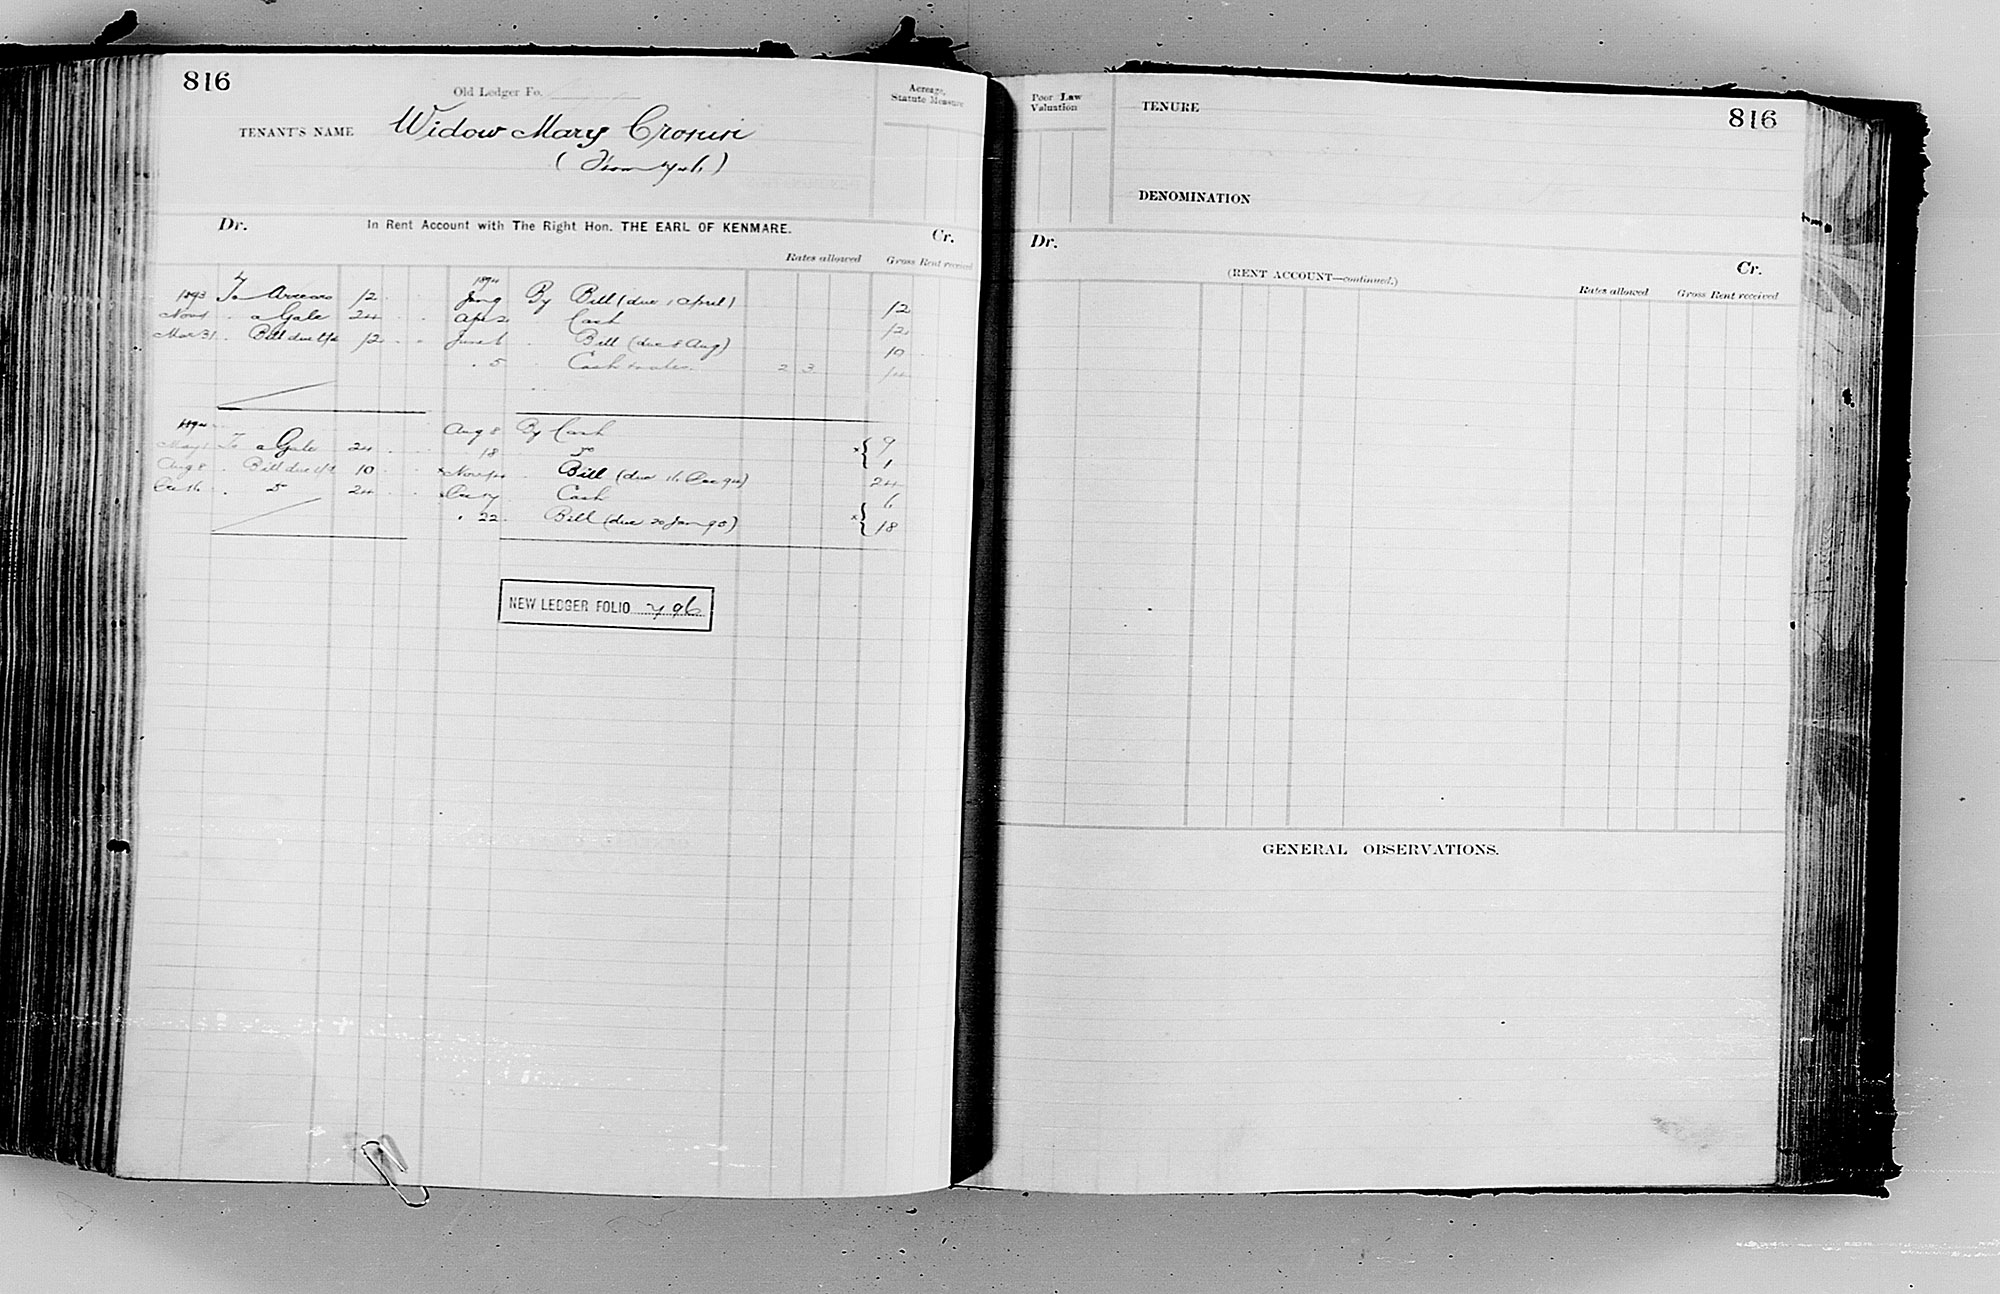 816
Old Ledger Fo.
Acreage, Statute Measure
TENANT'S NAME Widow Mary Cronin
(From 746)
Dr. In Rent Account with The Right Hon. THE EARL OF KENMARE. Cr.
Rates allowed Gross Rent received
1894
1893 To Arrears 12 Jany By Bill (due 1 April) 12
Nov 1 " a Gale 24 Apr 2 " Cash 12
Mar 31 " Bill due 12 June 6 " Bill (due 8 Aug) 10
" 5 " Cash 2 3 14
1894 Aug 8 By Cash 9
May 1 To a Gale 24 18 Do 1
Aug 8 " Bill due 10 Nov 14 " Bill (due 16 Dec 94) 24
Dec 16 " Do 24 Cash 6
" 22 Bill (due 20 Jan 95) 18
NEW LEDGER FOLIO 796
Poor Law Valuation
TENURE
816
DENOMINATION
Dr. (RENT ACCOUNT—continued.) Cr.
Rates allowed Gross Rent received
GENERAL OBSERVATIONS.